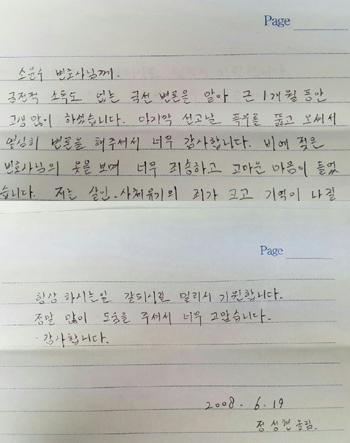 Page
소윤수 변호사님께.
금전적 소득도 없는 국선 변론을 맡아 근 1개월 동안
고생 많이 하셨습니다. 마지막 선고날 폭우를 뚫고 오셔서
열심히 변론을 해주셔서 너무 감사합니다. 비에 젖은
변호사님의 옷을 보며 너무 죄송하고 고마운 마음이 들었
습니다. 저는 살인.사체유기의 죄가 크고 기억이 나질
Page
항상 하시는일 잘되시길 멀리서 기원합니다.
정말 많이 도움을 주셔서 너무 고맙습니다.
감사합니다.
2008. 6. 19
정성현 올림.